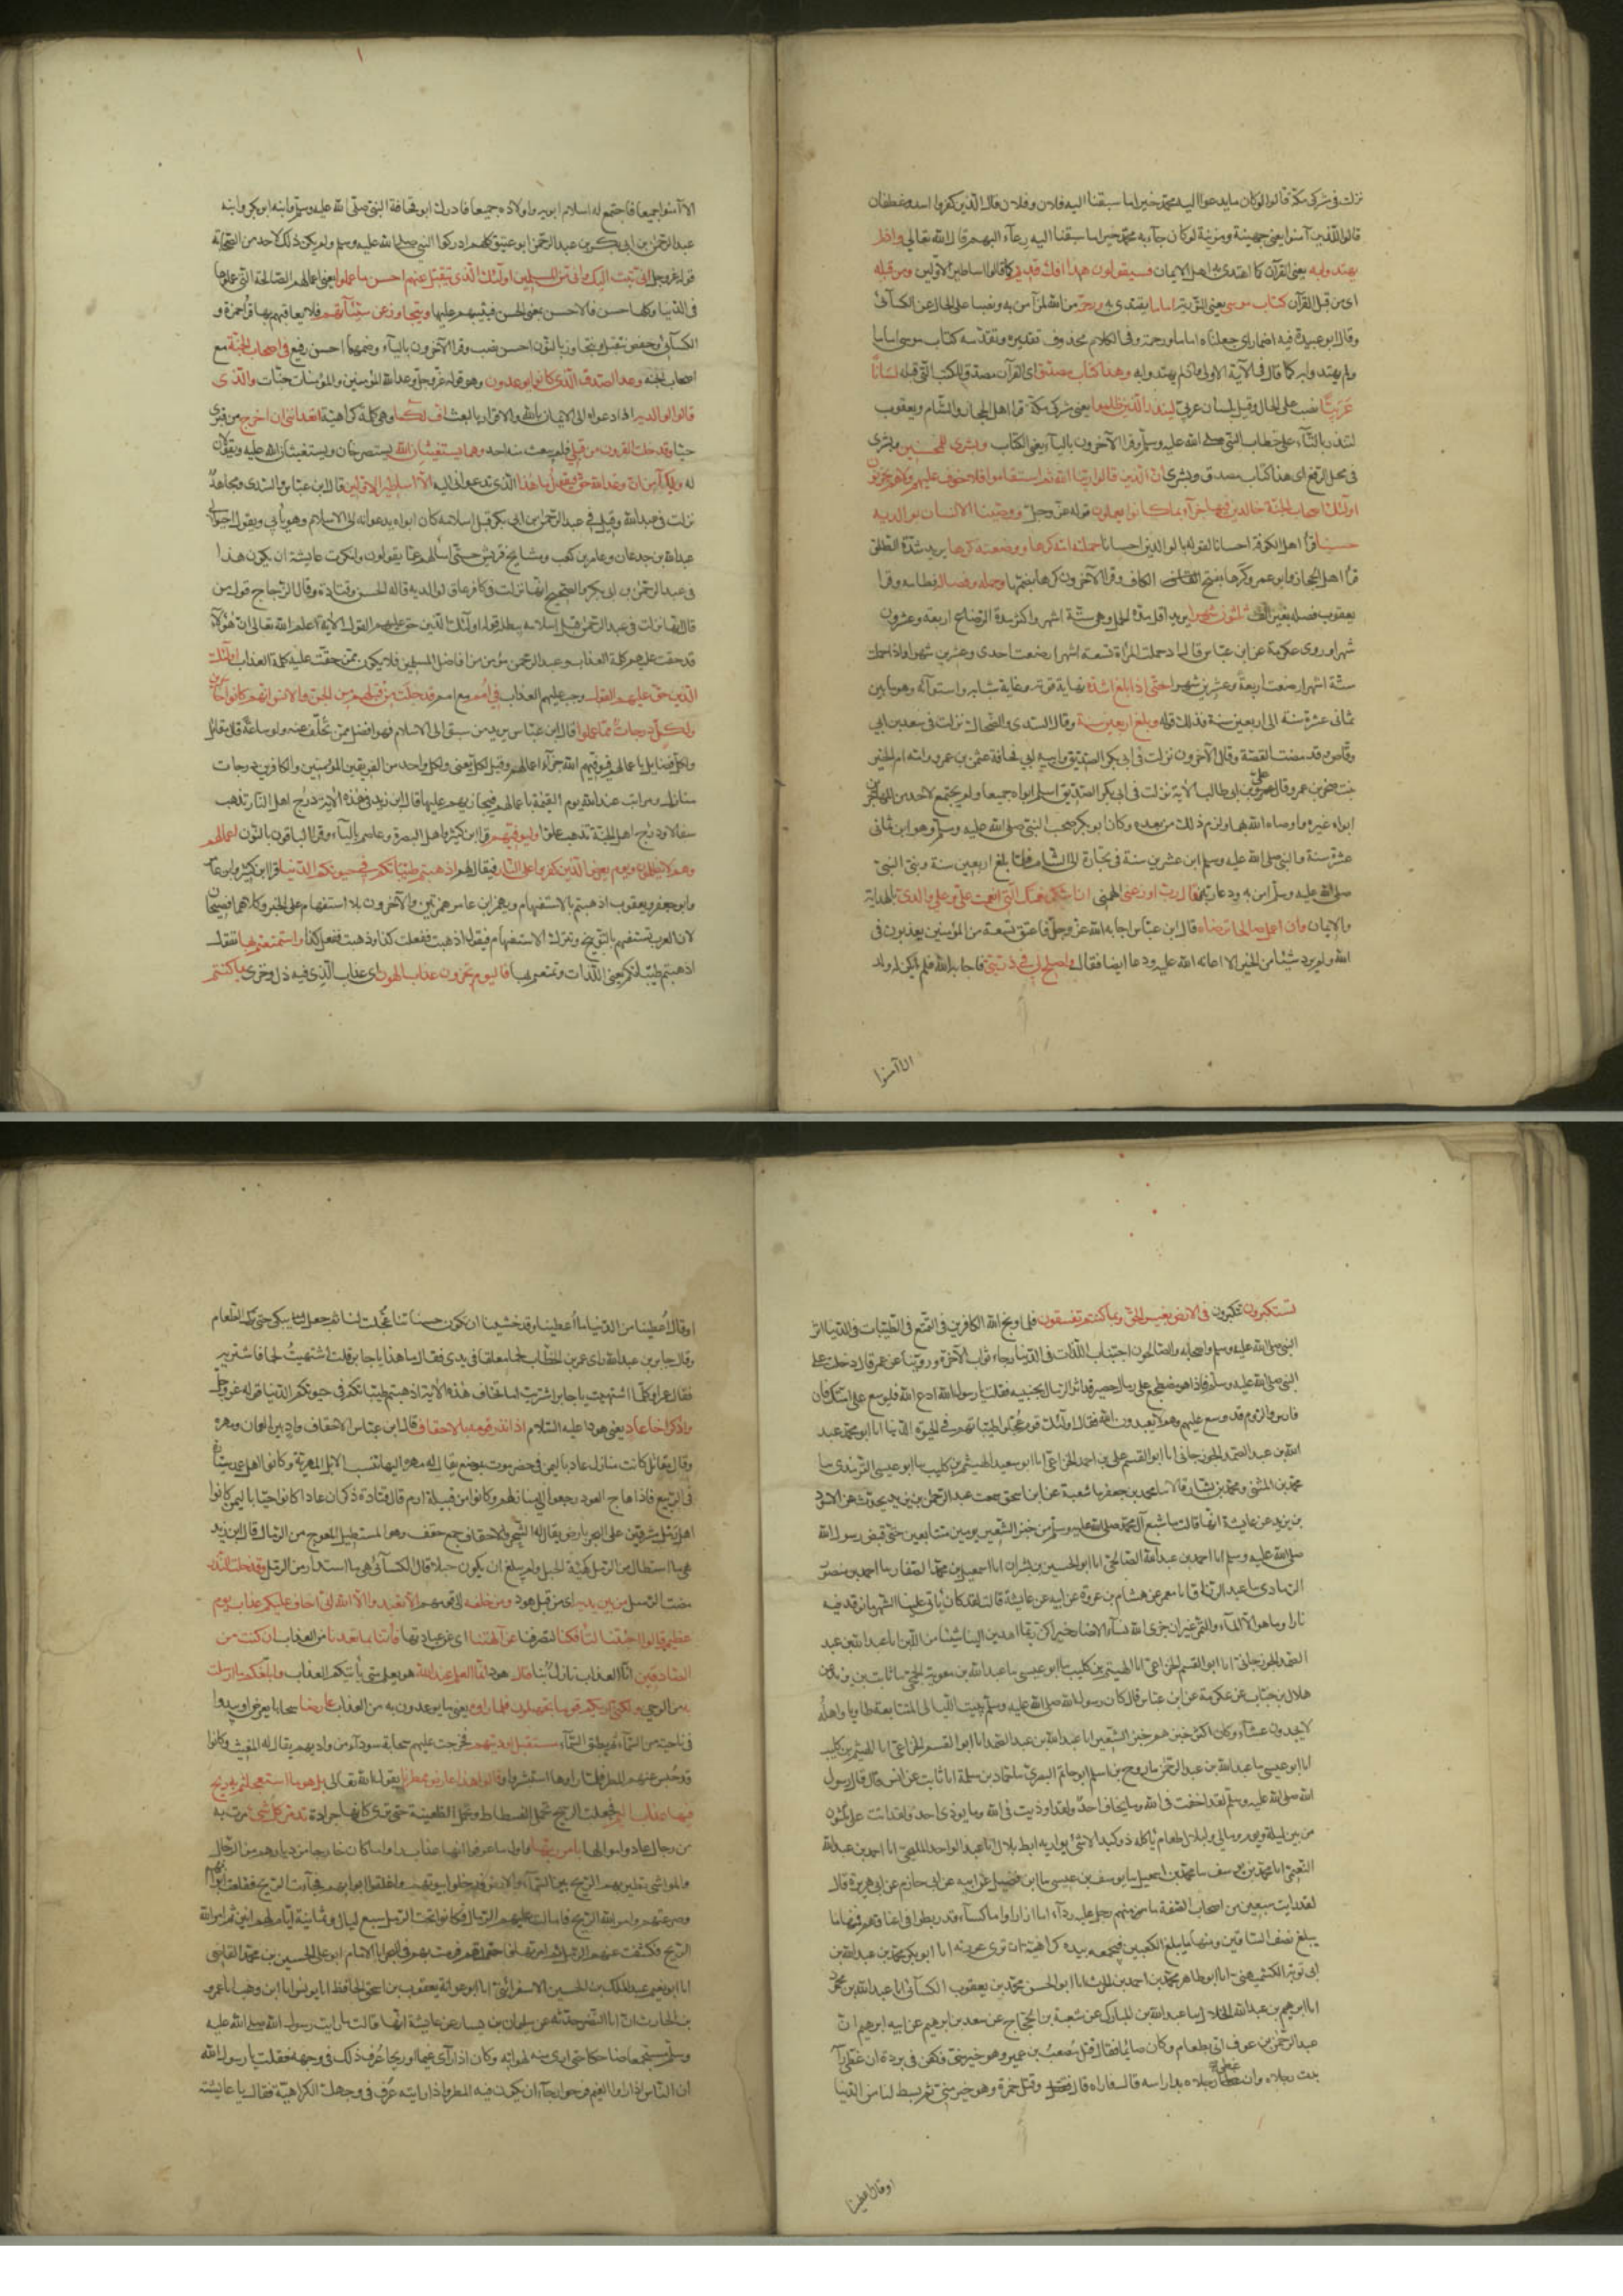 نزلت في مشركى مكة قالوا لو كان ما يدعوا اليه محمد خيرا ما سبقنا اليه فلان وفلان قال الذين كفروا اسد وغطفان
قالوا للذين آمنوا يعنى جهينة ومزينة لو كان ما جآء به محمد خيرا ما سبقنا اليه رعآء البهم قال الله تعالى واذ لم
يهتدوا به يعنى القرآن كما اهتدى به اهل الايمان فسيقولون هذا افك قديم كما قالوا اساطير الاولين ومن قبله
اى من قبل القرآن كتاب موسى يعنى التورية اماما يقتدى به ورحمة من الله لمن آمن به ونصبا على الحال عن الكسآئى
وقال ابو عبيدة فيه اضمار اى جعلناه اماما ورحمة وفى الكلام محذوف تقديره وتقدمه كتاب موسى اماما
ولم يهتدوا به كما قال فى الآية الاولى واذ لم يهتدوا به وهذا كتاب مصدق اى القرآن مصدق للكتب التى قبله لسانا
عربيا نصب على الحال وقيل بلسان عربى لينذر الذين ظلموا يعنى مشركى مكة قرا اهل الحجاز والشام ويعقوب
لتنذر بالتآء على خطاب النبى صلى الله عليه وسلم وقرا الآخرون باليآء يعنى الكتاب وبشرى للمحسنين وبشرى
فى محل الرفع اى هذا كتاب مصدق وبشرى ان الذين قالوا ربنا الله ثم استقاموا فلا خوف عليهم ولا هم يحزنون
اولئك اصحاب الجنة خالدين فيها جزآء بما كانوا يعملون قوله عز وجل ووصينا الانسان بوالديه
حسنا قرا اهل الكوفة احسانا لقوله بالوالدين احسانا حملته امه كرها ووضعته كرها يريد شدة الطلق
قرا اهل الحجاز وابو عمرو كرها بفتح الكاف وقرا الآخرون كرها بضمها وحمله وفصاله فطامه وقرا
يعقوب فصله بغير الف ثلثون شهرا يريد اقل مدة الحمل وهى ستة اشهر واكثر مدة الرضاع اربعة وعشرون
شهرا وروى عكرمة عن ابن عباس قال اذا حملت المرأة تسعة اشهر ارضعت احدى وعشرين شهرا واذا حملت
ستة اشهر ارضعت اربعة وعشرين شهرا حتى اذا بلغ اشده نهاية قوته وغاية شبابه واستوآئه وهو ما بين
ثمانى عشرة سنة الى اربعين سنة فذلك قوله وبلغ اربعين سنة وقال السدى والضحاك نزلت فى سعد بن ابى
وقاص وقد مضت القصة وقال الآخرون نزلت فى ابى بكر الصديق وابيه ابى قحافة عثمن بن عمرو وامه ام الخير
بنت صخر بن عمرو وقال على بن ابى طالب الآية نزلت فى ابى بكر الصديق اسلم ابواه جميعا ولم يجتمع لاحد من المهاجرين
ابواه غيره واوصاه الله بهما ولزم ذلك من بعده وكان ابو بكر صحب النبى صلى الله عليه وسلم وهو ابن ثمانى
عشرة سنة والنبى صلى الله عليه وسلم ابن عشرين سنة فى تجارة الى الشام فلما بلغ اربعين سنة ونبئ النبى
صلى الله عليه وسلم آمن به ودعا ربه فقال رب اوزعنى الهمنى ان اشكر نعمتك التى انعمت على وعلى والدى بالهداية
والايمان وان اعمل صالحا ترضاه قال ابن عباس اجابه الله عز وجل فاعتق تسعة من المؤمنين يعذبون فى
الله ولم يرد شيئا من الخير الا اعانه الله عليه ودعا ايضا فقال واصلح لى فى ذريتى فاجابه الله فلم يكن له ولد
الا آمنوا
الا آمنوا جميعا فاجتمع له اسلام ابويه واولاده جميعا فادرك ابو قحافة النبى صلى الله عليه وسلم وابنه ابو بكر وابنه
عبد الرحمن بن ابى بكر وبن عبد الرحمن ابو عتيق كلهم ادركوا النبى صلى الله عليه وسلم ولم يكن ذلك لاحد من الصحابة
قوله عز وجل انى تبت اليك وانى من المسلمين اولئك الذى تتقبل عنهم احسن ما عملوا يعنى اعمالهم الصالحة التى عملوها
فى الدنيا وكلها حسن فالاحسن بمعنى الحسن فيثيبهم عليها ويتجاوز عن سيئاتهم فلا يعاقبهم بها قرأ حمزة و
الكسآئى وحفص نتقبل ونتجاوز بالنون احسن نصب وقرا الآخرون باليآء وضمهما احسن رفع فى اصحاب الجنة مع
اصحاب الجنة وعد الصدق الذى كانوا يوعدون وهو قوله عز وجل وعد الله المؤمنين والمؤمنات جنات والذى
قال لوالديه اذا دعواه الى الايمان بالله والاقرار بالبعث اف لكما وهى كلمة كراهية اتعداننى ان اخرج من قبرى
حيا وقد خلت القرون من قبلى فلم يبعث منهم احد وهما يستغيثان الله يستصرخان ويستغيثان الله عليه ويقولان
له ويلك آمن ان وعد الله حق فيقول ما هذا الذى تدعوانى اليه الا اساطير الاولين قال ابن عباس والسدى ومجاهد
نزلت فى عبد الله وقيل فى عبد الرحمن بن ابى بكر قبل اسلامه كان ابواه يدعوانه الى الاسلام وهو يأبى ويقول احيوا لى
عبد الله بن جدعان وعامر بن كعب ومشايخ قريش حتى اسألهم عما يقولون وانكرت عايشة ان يكون هذا
فى عبد الرحمن بن ابى بكر والصحيح انها نزلت فى كافر عاق لوالديه قاله الحسن وقتادة وقال الزجاج قول من
قال انها نزلت فى عبد الرحمن قبل اسلامه يبطله قوله اولئك الذين حق عليهم القول الآية اعلم الله تعالى ان هؤلآء
قد حقت عليهم كلمة العذاب وعبد الرحمن مؤمن من افاضل المسلمين فلا يكون ممن حقت عليه كلمة العذاب اولئك
الذين حق عليهم القول وجب عليهم العذاب فى امم مع امم قد خلت من قبلهم من الجن والانس انهم كانوا خاسرين
ولكل درجات مما عملوا قال ابن عباس يريد من سبق الى الاسلام فهو افضل ممن تخلف عنه ولو ساعة وقال مقاتل
ولكل فضايل باعمالهم فيوفيهم الله جزآء اعمالهم وقيل لكل يعنى ولكل واحد من الفريقين المؤمنين والكافرين درجات
منازل ومراتب عند الله يوم القيمة باعمالهم فيجازيهم عليها قال ابن زيد فى هذه الآية درج اهل النار تذهب
سفالا ودرج اهل الجنة تذهب علوا وليوفيهم قرا ابن كثير واهل البصرة وعاصم باليآء وقرا الباقون بالنون اعمالهم
وهم لا يظلمون ويوم يعرض الذين كفروا على النار فيقال لهم اذهبتم طيباتكم فى حيوتكم الدنيا قرا ابن كثير وابن عامر
وابو جعفر ويعقوب اذهبتم بالاستفهام ويهمز ابن عامر همزتين والآخرون بلا استفهام على الخبر وكلاهما فصيحان
لان العرب تستفهم بالتوبيخ وتترك الاستفهام فيقول اذهبت ففعلت كذا وذهبت ففعلت كذا واستمتعتم بها تقول
اذهبتم طيباتكم يعنى اللذات وتمتعتم بها فاليوم تجزون عذاب الهون اى عذاب الذى فيه ذل وخزى بما كنتم
تستكبرون تتكبرون فى الارض بغير الحق وبما كنتم تفسقون فلما وبخ الله الكافرين فى التمتع فى الطيبات فى الدنيا اثر
النبى صلى الله عليه وسلم واصحابه والصالحون اجتناب اللذات فى الدنيا رجاء ثواب الآخرة وروينا عن عمر قال دخلت على
النبى صلى الله عليه وسلم فاذا هو مضطجع على رمال حصير قد اثر الرمال بجنبيه فقلت يا رسول الله ادع الله فليوسع على امتك فان
فارس والروم قد وسع عليهم وهم لا يعبدون الله فقال اولئك قوم عجلوا طيباتهم فى الحيوة الدنيا انا ابو محمد عبد
الله بن عبد الصمد الجوزجانى انا ابو القسم على بن احمد الخزاعى انا ابو سعيد الهيثم بن كليب نا ابو عيسى الترمذى نا
محمد بن المثنى ومحمد بن بشار قالا نا محمد بن جعفر نا شعبة عن ابن اسحق سمعت عبد الرحمن بن يزيد يحدث عن الاسود
بن يزيد عن عايشة انها قالت ما شبع آل محمد صلى الله عليه وسلم من خبز الشعير يومين متتابعين حتى قبض رسول الله
صلى الله عليه وسلم انا احمد بن عبد الله الصالحى انا ابو الحسين بن بشران انا اسمعيل بن محمد الصفار نا احمد بن منصور
الرمادى نا عبد الرزاق انا معمر عن هشام بن عروة عن ابيه عن عايشة قالت لقد كان يأتى علينا الشهر ما نوقد فيه
نارا وما هو الا المآء والتمر غير ان جزى الله نسآء الانصار خيرا كن ربما اهدين الينا شيئا من اللبن انا عبد الله بن عبد
الصمد الجوزجانى انا ابو القسم الخزاعى انا الهيثم بن كليب نا ابو عيسى نا عبد الله بن معوية الجمحى نا ثابت بن يزيد عن
هلال بن خباب عن عكرمة عن ابن عباس قال كان رسول الله صلى الله عليه وسلم يبيت الليالى المتتابعة طاويا واهله
لا يجدون عشآء وكان اكثر خبزهم خبز الشعير انا عبد الله بن عبد الصمد انا ابو القسم الخزاعى انا الهيثم بن كليب
انا ابو عيسى نا عبد الله بن عبد الرحمن نا روح بن اسلم ابو حاتم البصرى نا حماد بن سلمة انا ثابت عن انس قال قال رسول
الله صلى الله عليه وسلم لقد اخفت فى الله وما يخاف احد ولقد اوذيت فى الله وما يوذى احد ولقد اتت على ثلثون
من بين ليلة ويوم وما لى ولبلال طعام يأكله ذو كبد الا شئ يواريه ابط بلال انا عبد الواحد المليحى انا احمد بن عبد الله
النعيمى انا محمد بن يوسف نا محمد بن اسمعيل نا يوسف بن عيسى نا ابن فضيل عن ابيه عن ابى حازم عن ابى هريرة قال
لقد رايت سبعين من اصحاب الصفة ما منهم رجل عليه ردآء اما ازار واما كسآء قد ربطوا فى اعناقهم فمنها ما
يبلغ نصف الساقين ومنها ما يبلغ الكعبين فيجمعه بيده كراهية ان ترى عورته انا ابو بكر محمد بن عبد الله بن
ابى توبة الكشميهنى انا ابو طاهر محمد بن احمد بن الحارث انا ابو الحسن محمد بن يعقوب الكسآئى انا عبد الله بن محمود
انا ابرهيم بن عبد الله الخلال نا عبد الله بن المبارك عن شعبة بن الحجاج عن سعد بن ابرهيم عن ابيه ابرهيم ان
عبد الرحمن بن عوف اتى بطعام وكان صائما فقال قتل مصعب بن عمير وهو خير منى فكفن فى بردة ان غطى رأسه
بدت رجلاه وان غطى رجلاه بدا راسه قال فاراه قال وقتل حمزة وهو خير منى ثم بسط لنا من الدنيا
او قال اعطينا
او قال اعطينا من الدنيا ما اعطينا وقد خشينا ان يكون حسناتنا عجلت لنا ثم جعل يبكى حتى ترك الطعام
وقال جابر بن عبد الله راى عمر بن الخطاب لحما معلقا فى يدى فقال ما هذا يا جابر قلت اشتهيت لحما فاشتريته
فقال عمر او كلما اشتهيت يا جابر اشتريت اما تخاف هذه الآية اذهبتم طيباتكم فى حيوتكم الدنيا قوله عز وجل
واذكر اخا عاد يعنى هودا عليه السلام اذ انذر قومه بالاحقاف قال ابن عباس الاحقاف واد بين عمان ومهرة
وقال مقاتل كانت منازل عاد باليمن فى حضرموت بموضع يقال له مهرة اليها تنسب الابل المهرية وكانوا اهل عمد سيارة
فى الربيع فاذا هاج العود رجعوا الى منازلهم وكانوا من قبيلة ارم قال قتادة ذكر ان عادا كانوا حيا باليمن كانوا
اهل رمل مشرفين على البحر بارض يقال لها الشحر والاحقاف جمع حقف وهو المستطيل المعوج من الرمال قال ابن زيد
هى ما استطال من الرمل كهيئة الجبل ولم يبلغ ان يكون جبلا وقال الكسآئى هى ما استدار من الرمل وقد خلت النذر
مضت الرسل من بين يديه اى من قبل هود ومن خلفه الى قومهم الا تعبدوا الا الله انى اخاف عليكم عذاب يوم
عظيم قالوا اجئتنا لتأفكنا لتصرفنا عن آلهتنا اى عن عبادتها فأتنا بما تعدنا من العذاب ان كنت من
الصادقين ان العذاب نازل بنا قال هود انما العلم عند الله هو يعلم متى يأتيكم العذاب وابلغكم ما ارسلت
به من الوحى ولكنى اريكم قوما تجهلون فلما راوه يعنى ما يوعدون به من العذاب عارضا سحابا يعرض اى يبدوا
فى ناحية من السمآء ثم يطبق السمآء مستقبل اوديتهم فخرجت عليهم سحابة سودآء من واد لهم يقال له المغيث وكانوا
قد حبس عنهم المطر فلما راوها استبشروا وقالوا هذا عارض ممطرنا يقول الله تعالى بل هو ما استعجلتم به ريح
فيها عذاب اليم فجعلت الريح تحمل الفسطاط وتحمل الظعينة حتى ترى كانها جرادة تدمر كل شئ مرت به
من رجال عاد واموالها بامر ربها فاول ما عرفوا انها عذاب راوا ما كان خارجا من ديارهم من الرحال
والمواشى تطير بهم الريح بين السمآء والارض فدخلوا بيوتهم واغلقوا ابوابهم فجآءت الريح فقلعت ابوابهم
وصرعتهم وامر الله الريح فامالت عليهم الرمال فكانوا تحت الرمل سبع ليال وثمانية ايام لهم انين ثم امر الله
الريح فكشفت عنهم الرمال فاحتملتهم فرمت بهم فى البحر انا الامام ابو على الحسين بن محمد القاضى
انا ابو نعيم عبد الملك بن الحسين الاسفرائنى انا ابو عوانة يعقوب بن اسحق الحافظ انا يونس انا ابن وهب انا عمرو
بن الحارث ان ابا النضر حدثه عن سليمان بن يسار عن عايشة انها قالت ما رايت رسول الله صلى الله عليه
وسلم مستجمعا ضاحكا حتى ارى منه لهواته وكان اذا رآى غيما او ريحا عرف ذلك فى وجهه فقلت يا رسول الله
ان الناس اذا راوا الغيم فرحوا رجآء ان يكون فيه المطر واذا رايته عرف فى وجهك الكراهية فقال يا عايشة